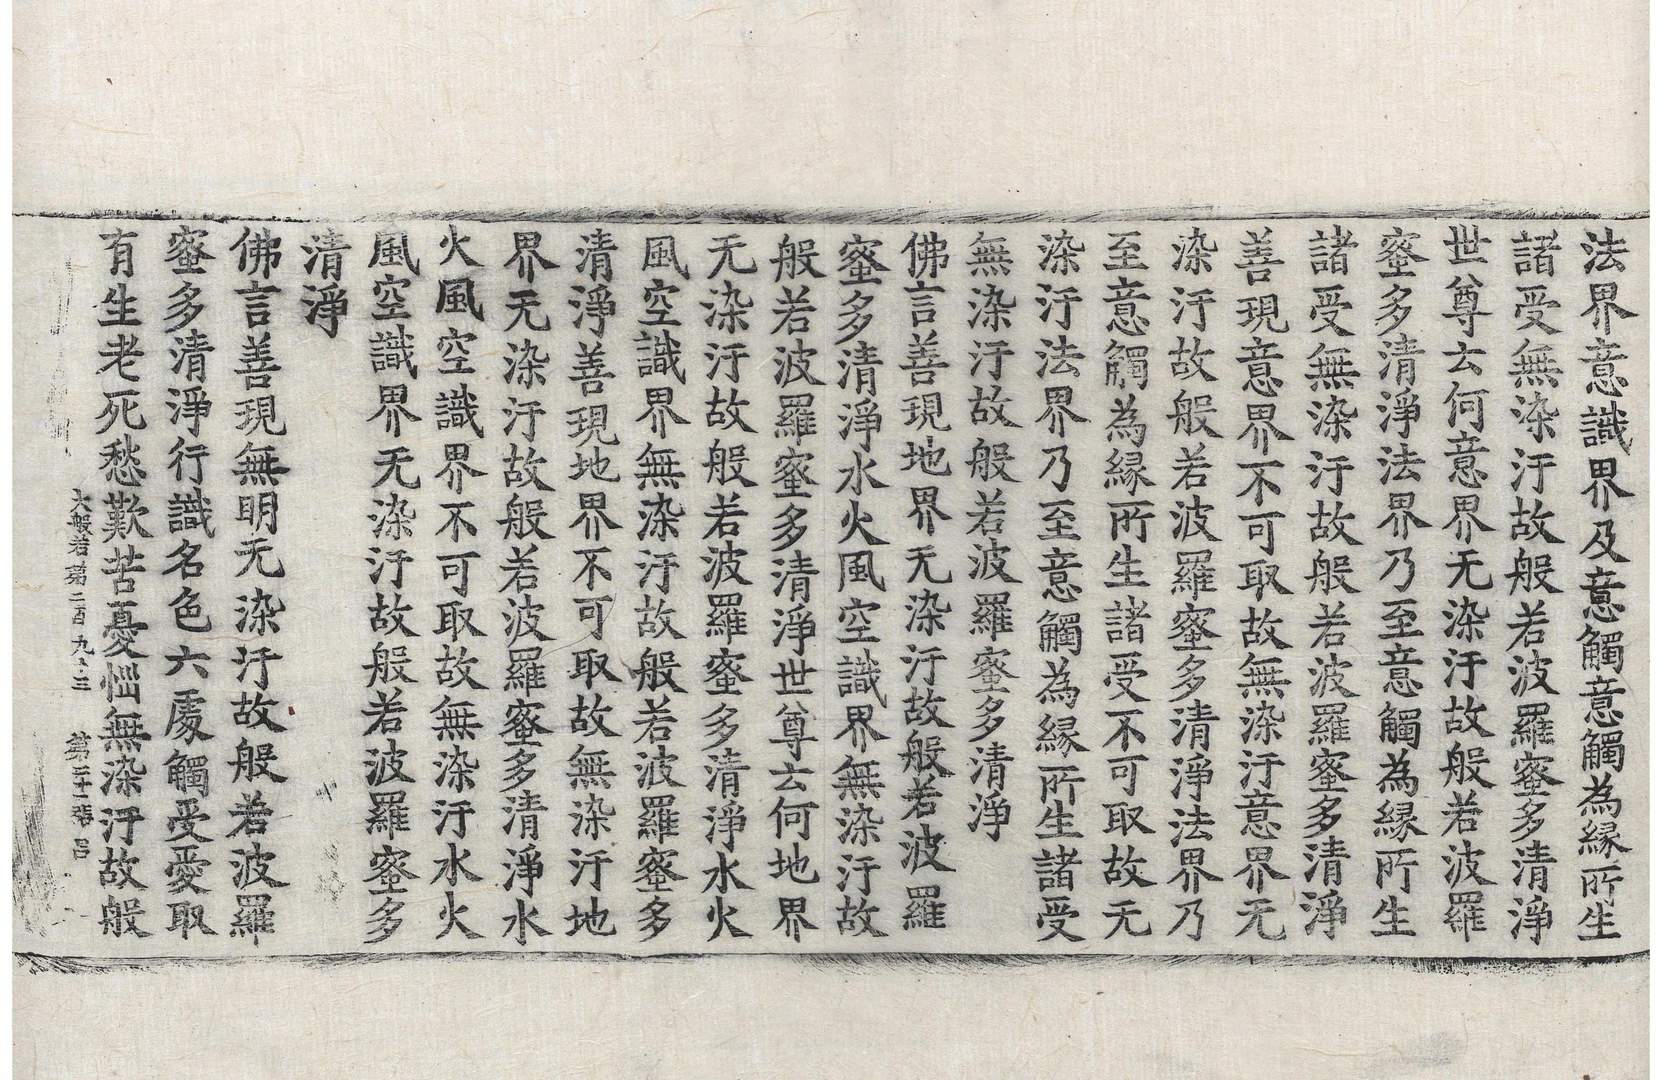 法界意識界及意觸意觸為縁所生
諸受無染汙故般若波羅蜜多清淨
世尊云何意界无染汙故般若波羅
蜜多清淨法界乃至意觸為縁所生
諸受無染汙故般若波羅蜜多清淨
善現意界不可取故無染汙意界无
染汙故般若波羅蜜多清淨法界乃
至意觸為縁所生諸受不可取故无
染汙法界乃至意觸為縁所生諸受
無染汙故般若波羅蜜多清淨
佛言善現地界无染汙故般若波羅
蜜多清淨水火風空識界無染汙故
般若波羅蜜多清淨世尊云何地界
无染汙故般若波羅蜜多清淨水火
風空識界無染汙故般若波羅蜜多
清淨善現地界不可取故無染汙地
界无染汙故般若波羅蜜多清淨水
火風空識界不可取故無染汙水火
風空識界无染汙故般若波羅蜜多
清淨
佛言善現無明无染汙故般若波羅
蜜多清淨行識名色六處觸受愛取
有生老死愁歎苦憂惱無染汙故般
大般若第二百九十三 第二十一張 呂